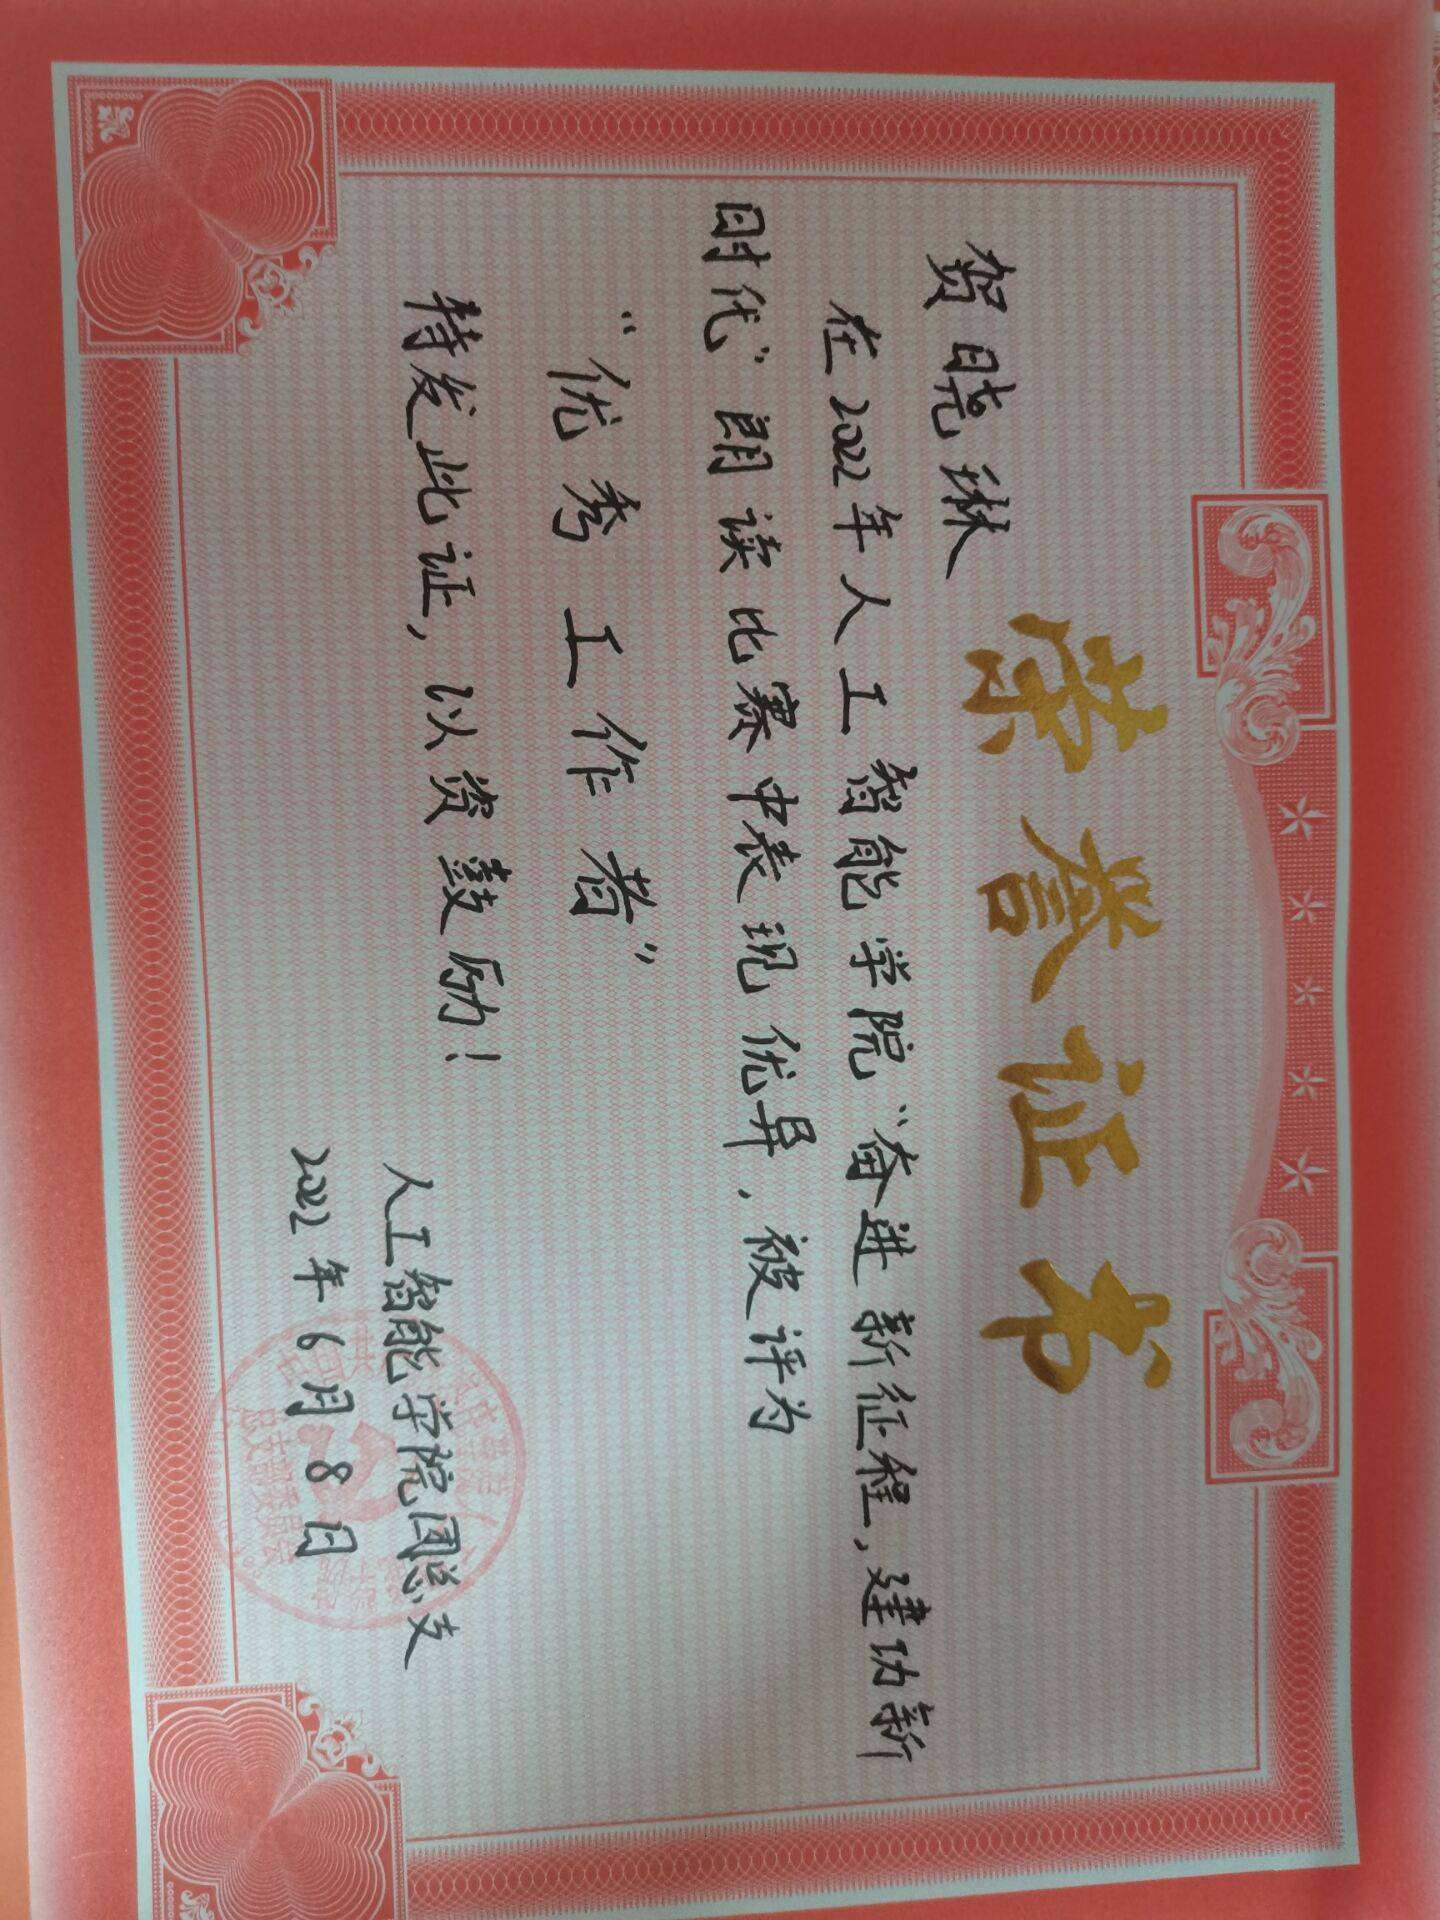 荣誉证书
贺晓琳
在2022年人工智能学院“奋进新征程,建功新
时代”朗读比赛中表现优异,被评为
“优秀工作者”
特发此证,以资鼓励!
人工智能学院团总支
2022年6月8日